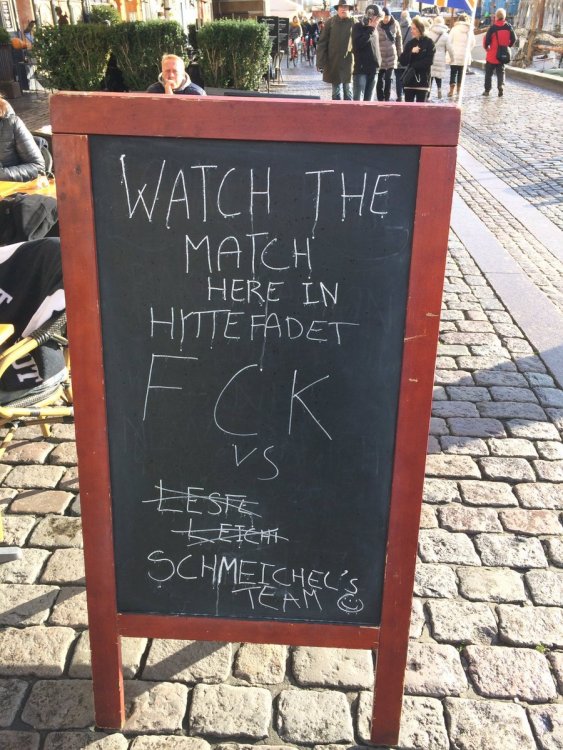 WATCH THE
MATCH
HERE IN
HYTTEFADET
FCK
VS
LESFE
LEICHT
SCHMEICHEL'S
TEAM